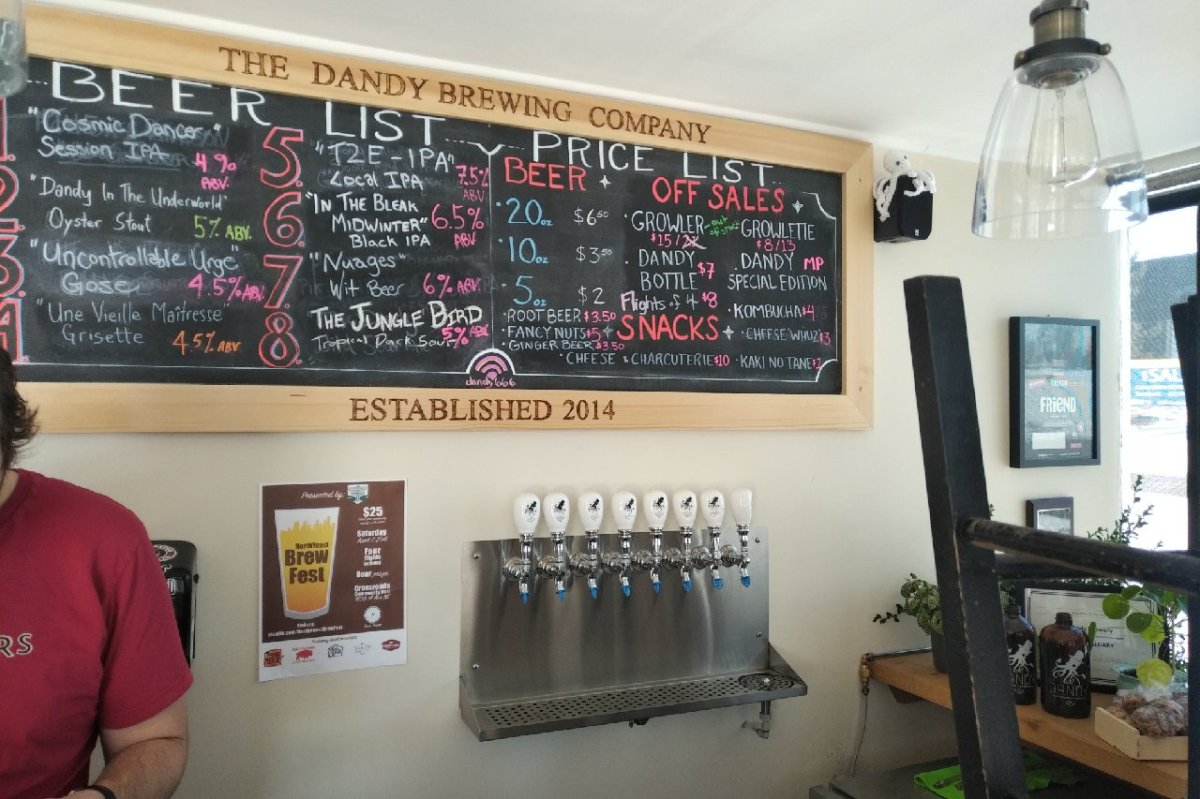 THE DANDY BREWING COMPANY
BEER LIST
1.
"Cosmic Dancer"
Session IPA
4%
ABV
2
"Dandy In The Underworld"
Oyster Stout 5% ABV.
3
"Uncontrollable Urge"
Gose 4.5% ABV.
4
"Une Vieille Maîtresse"
Grisette 4.5% ABV
5.
"T2E-IPA"
Local IPA
7.5%
ABV
6.
"IN THE BLEAK
MIDWINTER"
Black IPA
6.5%
ABV
7.
"Nuages"
Wit Beer 6% ABV.
8.
THE JUNGLE BIRD
Tropical Dark Sour 5% ABV
dandy666
PRICE LIST
BEER
20oz $6.50
10oz $3.50
5oz $2
ROOT BEER $3.50
FANCY NUTS $5
GINGER BEER $3.50
OFF SALES
GROWLER out of stock
$15/
GROWLETTE
$8/13
DANDY
BOTTLE $7
DANDY MP
SPECIAL EDITION
Flights of 4 $8
KOMBUCHA $4
SNACKS
CHEESE WHUZ $3
CHEESE & CHARCUTERIE $10
KAKI NO TANE
ESTABLISHED 2014
Presented by:
$25
Saturday
Four
Beer prizes
Crossroads
Northeast
Brew
Fest
FRIEND
RS